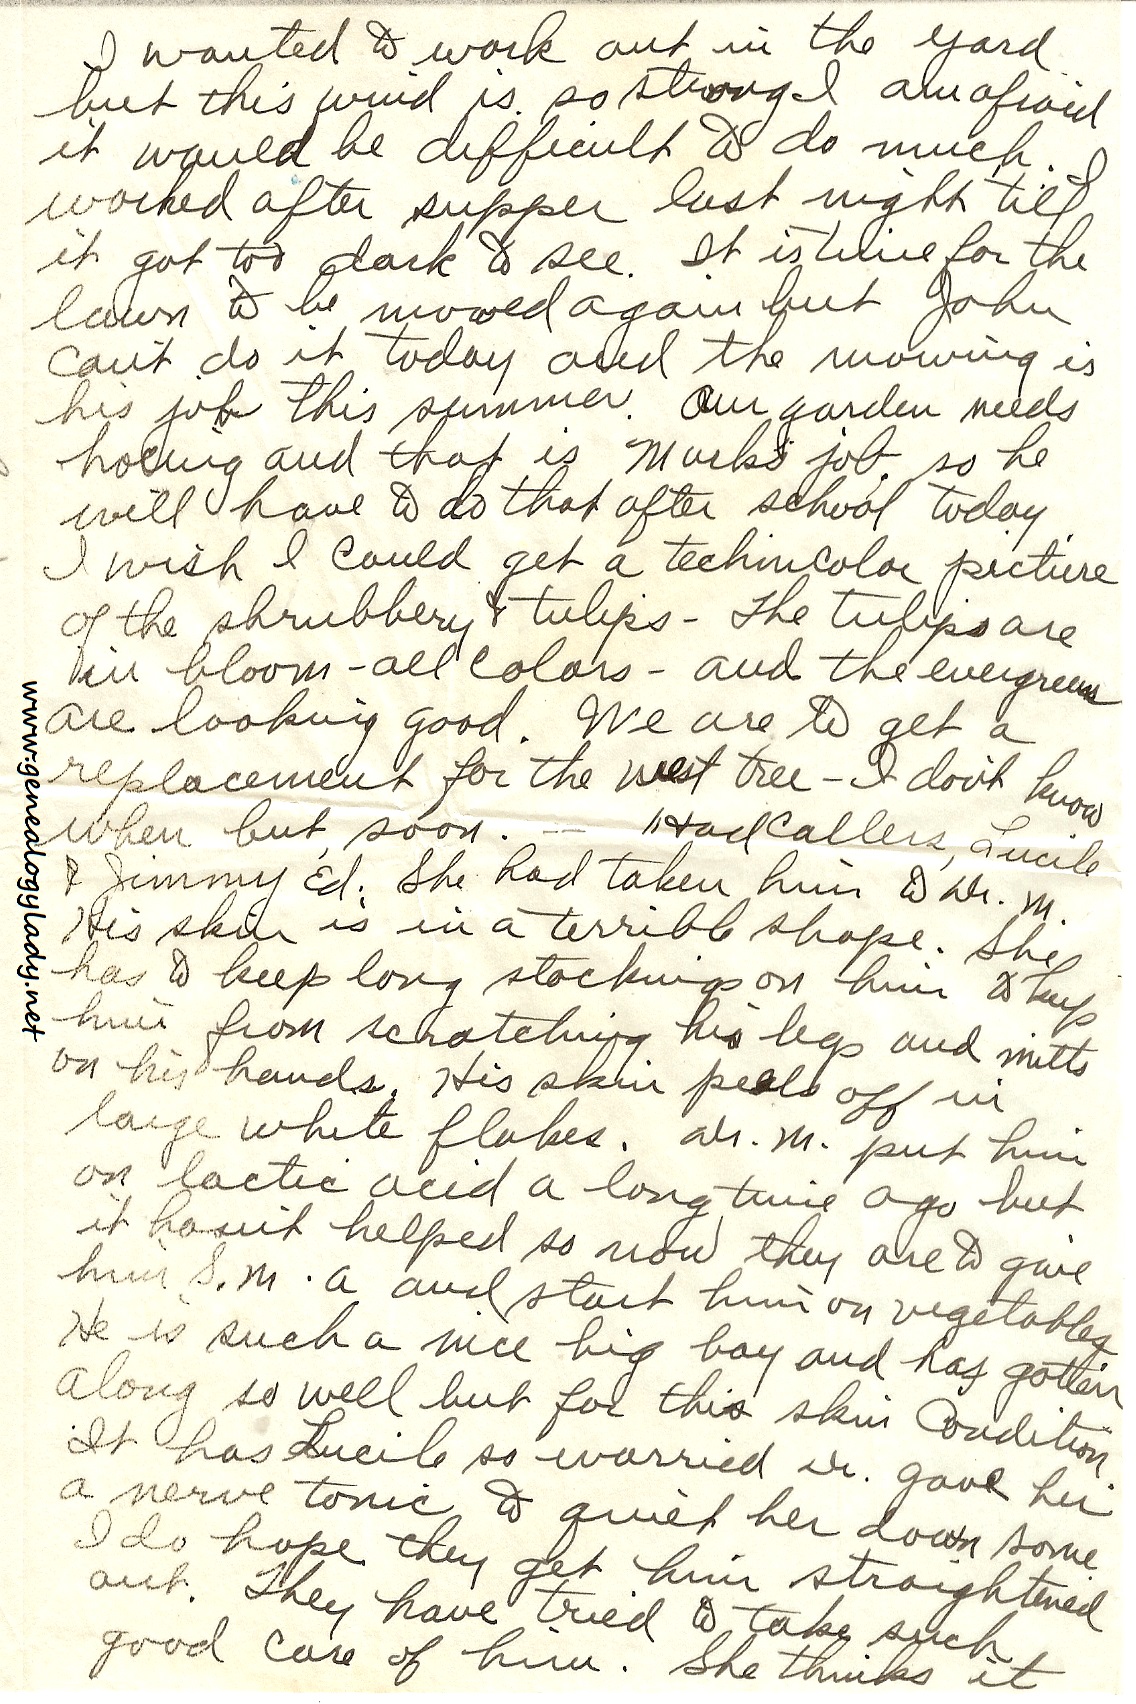 I wanted to work out in the yard
but this wind is so strong I am afraid
it would be difficult to do much. I
worked after supper last night till
it got too dark to see. It is time for the
lawn to be mowed again but John
can't do it today and the mowing is
his job this summer. Our garden needs
hoeing and that is Mark's job, so he
will have to do that after school today
I wish I could get a techincolor picture
of the shrubbery & tulips - The tulips are
in bloom - all colors - and the evergreens
are looking good. We are to get a
replacement for the west tree - I don't know
when but, soon. — "Had callers, Lucile
& Jimmy Ed. She had taken him to Dr. M.
His skin is in a terrible shape. She
has to keep long stockings on him to keep
him from scratching his legs and mitts
on his hands. His skin peels off in
large white flakes. Dr. M. put him
on lactic acid a long time ago but
it hasn't helped so now they are to give
him S.M.A and start him on vegetables
He is such a nice big boy and has gotten
along so well but for this skin condition.
It has Lucile so worried Dr. gave her
a nerve tonic to quiet her down some
I do hope they get him straightened
out. They have tried to take such
good care of him. She thinks it
www.genealogylady.net